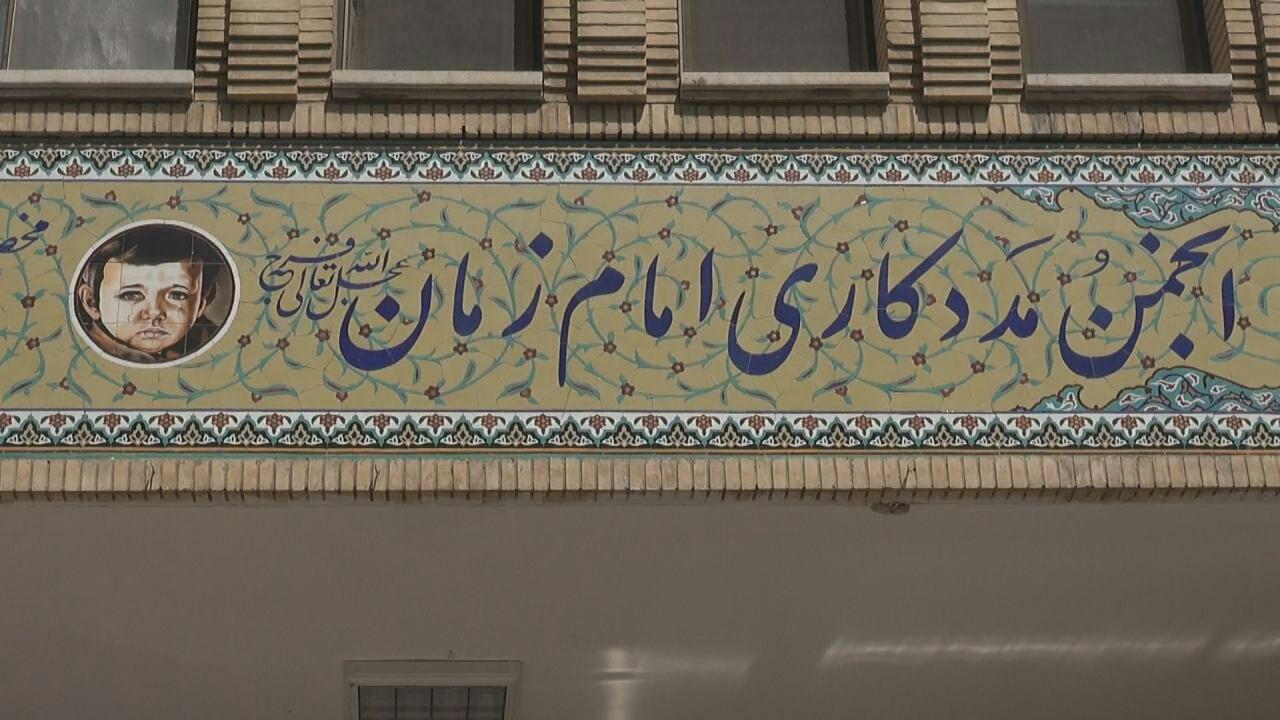 انجمنُ مَددکاری امام زمان عجل الله تعالی فرجه